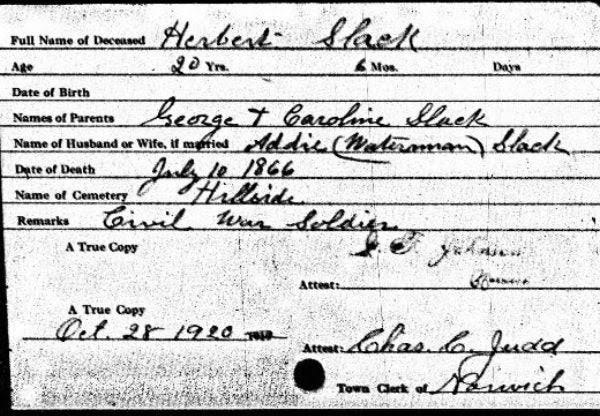 Full Name of Deceased Herbert Slack
Age 20 Yrs. 6 Mos. Days
Date of Birth
Names of Parents George + Caroline Slack
Name of Husband or Wife, if married Addie (Waterman) Slack
Date of Death July 10 1866
Name of Cemetery Hillside
Remarks Civil War Soldier
A True Copy
Attest:
A True Copy
Oct. 28 1920
Attest: Chas. C. Judd
Town Clerk of Norwich